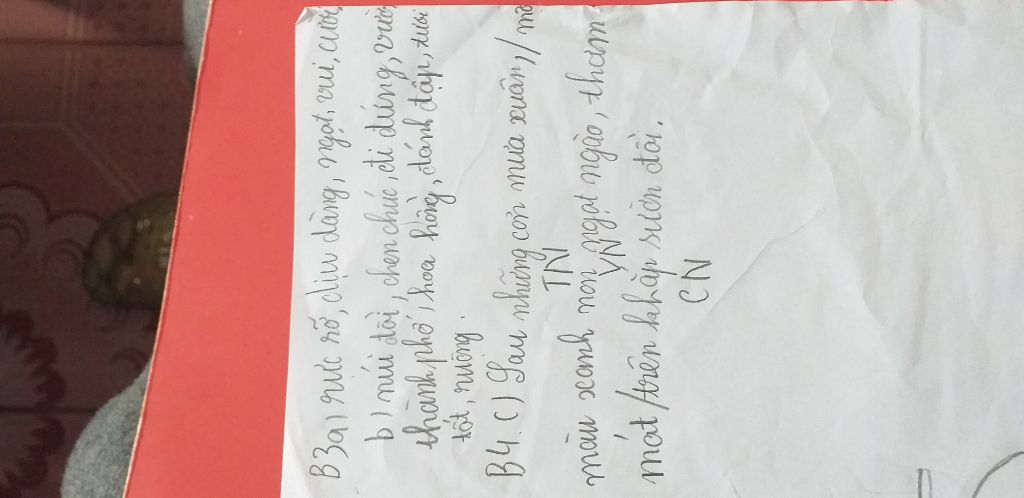 B3a) rực rỡ, dịu dàng, ngọt, vui, cười,
b) núi đồi, chen chúc, đi đứng, vườn
thành phố, hoa hồng, đánh đập, tươi
tốt, ruộng.
B4. c) Sau những cơn mưa xuân, /
TN
màu xanh non ngọt ngào, thơm
VN
mát / trên khắp sườn đồi.
CN